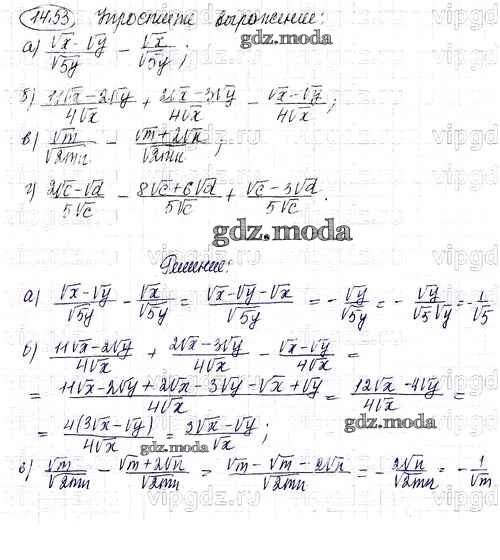 14.53 Упростите выражение:
gdz.moda
а) (√x - √y)/√5y - √x/√5y;
б) (11√x - 2√y)/4√x + (2√x - 3√y)/4√x - (√x - √y)/4√x;
в) √m/√2mn - (√m + 2√n)/√2mn;
г) (2√c - √d)/5√c - (8√c + 6√d)/5√c + (√c - 3√d)/5√c.
gdz.moda
Решение:
а) (√x - √y)/√5y - √x/√5y = (√x - √y - √x)/√5y = - √y/√5y = - √y/√5√y = - 1/√5
б) (11√x - 2√y)/4√x + (2√x - 3√y)/4√x - (√x - √y)/4√x =
= (11√x - 2√y + 2√x - 3√y - √x + √y)/4√x = (12√x - 4√y)/4√x =
= 4(3√x - √y)/4√x = (3√x - √y)/√x;
gdz.moda
в) √m/√2mn - (√m + 2√n)/√2mn = (√m - √m - 2√n)/√2mn = - 2√n/√2mn = - 1/√m